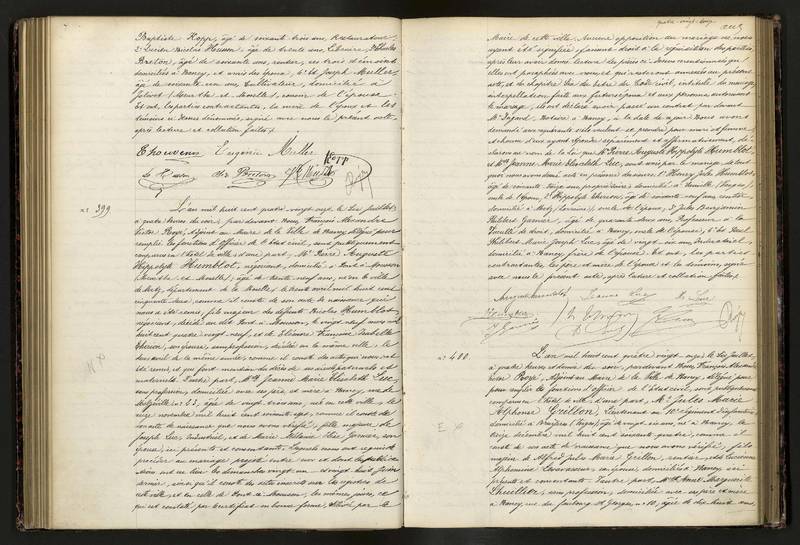 Baptiste Kopp, âgé de soixante trois ans, Restaurateur,
2° Lucien Nicolas Husson, âgé de trente ans, Libraire, 3° Charles
Breton, âgé de soixante ans, rentier, ces trois
domiciliés à Nancy, et amis des époux, 4° et Joseph Muller,
âgé de soixante ans, Cultivateur, domicilié à
(Meurthe et Moselle), cousin de l'épouse.
Et ont, les parties contractantes, la mère de l'époux et les
témoins signé avec nous le présent acte,
après lecture et collation faites.
Thouvenin Eugénie Muller
Kopp
Husson Ch. Breton Muller
n° 399
L'an mil huit cent quatre vingt onze, le six juillet,
à quatre heures du soir, par devant nous, François Alexandre
Victor Adjoint au Maire de la Ville de Nancy, délégué pour
remplir les fonctions d'officier de l'état civil, sont publiquement
comparus en l'hôtel de ville, d'une part, Mr Pierre Auguste
Hippolyte Humblot, négociant, domicilié à Pont à Mousson
âgé de trente neuf ans, né en la ville
de Metz, département de la Moselle, le trente avril mil huit cent
cinquante deux, comme il conste de son acte de naissance qui
nous a été remis, fils majeur des défunts Nicolas Humblot,
négociant, décédé au dit Pont à Mousson, le vingt neuf mars mil
huit cent quatre vingt neuf, et de Eléonore Françoise Isabelle
Thirion, son épouse, sans profession, décédée en la même ville, le
deux avril de la même année, comme il conste des actes qui nous ont
été remis, et qui font mention du décès de ses aïeuls paternels et
maternels. D'autre part, Mlle Jeanne Marie Elisabeth Luc,
sans profession, domiciliée avec ses père et mère à Nancy, rue de
n° 53, âgée de vingt trois ans, née en cette ville, le
onze novembre mil huit cent soixante sept, comme il conste de
son acte de naissance que nous avons vérifié, fille majeure de
Joseph Luc, Industriel, et de Marie Mélanie Garnier, son
épouse, ici présents et consentants. Lesquels nous ont requis de
procéder au mariage projeté entre eux et dont les publications
ont eu lieu les dimanches vingt un et vingt huit juin
dernier, ainsi qu'il conste des actes inscrits sur les registres de
cette ville, et en celle de Pont à Mousson, les mêmes jours, ce
qui est constaté par certificat en bonne forme, délivré par le
N X
quatre-vingt-onze
Maire de cette ville. Aucune opposition au mariage ne nous
ayant été signifiée, faisant droit à la réquisition des parties,
après leur avoir donné lecture des pièces
elles ont paraphées avec nous, et qui resteront annexées au présent
acte, et du chapitre six du titre du Code civil, intitulé du mariage,
interpellation faite aux futurs époux et aux personnes autorisant
le mariage, ils ont déclaré avoir passé un contrat par devant
Me Notaire à Nancy, à la date de ce jour. Nous avons
demandé aux représentés s'ils veulent se prendre pour mari et femme,
et chacun d'eux ayant répondu séparément et affirmativement, dé-
clarons au nom de la loi que Mr Pierre Auguste Hippolyte Humblot,
et Mlle Jeanne Marie Elisabeth Luc, sont unis par le mariage. De tout
quoi nous avons dressé acte en présence des sieurs 1° Henry Jules Humblot,
âgé de soixante ans, propriétaire, domicilié à (Vosges),
oncle de l'époux, 2° Hippolyte Thirion, âgé de soixante neuf ans, rentier,
domicilié à Metz, oncle de l'époux, 3° Jules Benjamin
Philibert Garnier, âgé de quarante deux ans, Professeur à la
Faculté de droit, domicilié à Nancy, oncle de l'épouse, 4° et Paul
Philibert Marie Joseph Luc, âgé de vingt six ans, Industriel,
domicilié à Nancy, frère de l'épouse. Et ont, les parties
contractantes, les père et mère de l'épouse et les témoins, signé
avec nous le présent acte, après lecture et collation faites.
Humblot Jeanne Luc
J. Garnier
n° 400.
L'an mil huit cent quatre vingt onze, le six juillet,
à quatre heures et demie du soir, par devant nous, François Alexandre
Victor Adjoint au Maire de la Ville de Nancy, délégué pour
remplir les fonctions d'officier de l'état civil, sont publiquement
comparus en l'hôtel de ville, d'une part, Mr Jules Marie
Alphonse Grillon, Lieutenant au Régiment d'infanterie,
domicilié à Bruyères (Vosges), âgé de vingt six ans, né à Nancy, le
treize décembre mil huit cent soixante quatre, comme il
conste de son acte de naissance que nous avons vérifié, fils
majeur de Alfred Jules Marie Grillon, rentier, et de
Alphonsine son épouse, domiciliés à Nancy, ici
présents et consentants. D'autre part, Mlle Anne Marguerite
Lhuillier, sans profession, domiciliée avec ses père et mère
à Nancy, rue du faubourg St Georges, n° 10, âgée de dix huit ans,
E X